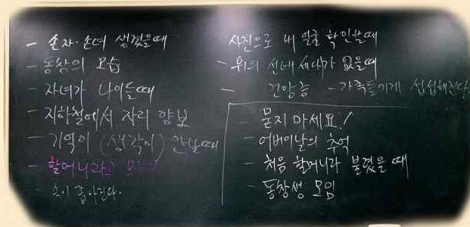 - 손자·손녀 생겼을때
- 동창의 모습
- 자녀가 나이들때
- 지하철에서 자리 양보
- 기억이 (생각이) 안날때
- 할머니라고
- 속이 좁아진다.
사진으로 내 얼굴 확인할때
- 위의 선배 세대가 없을때
- 건망증 - 가족들에게 섭섭해진다
- 묻지 마세요!
- 어버이날의 추억
- 처음 할머니라 불렸을 때
- 동창생 모임